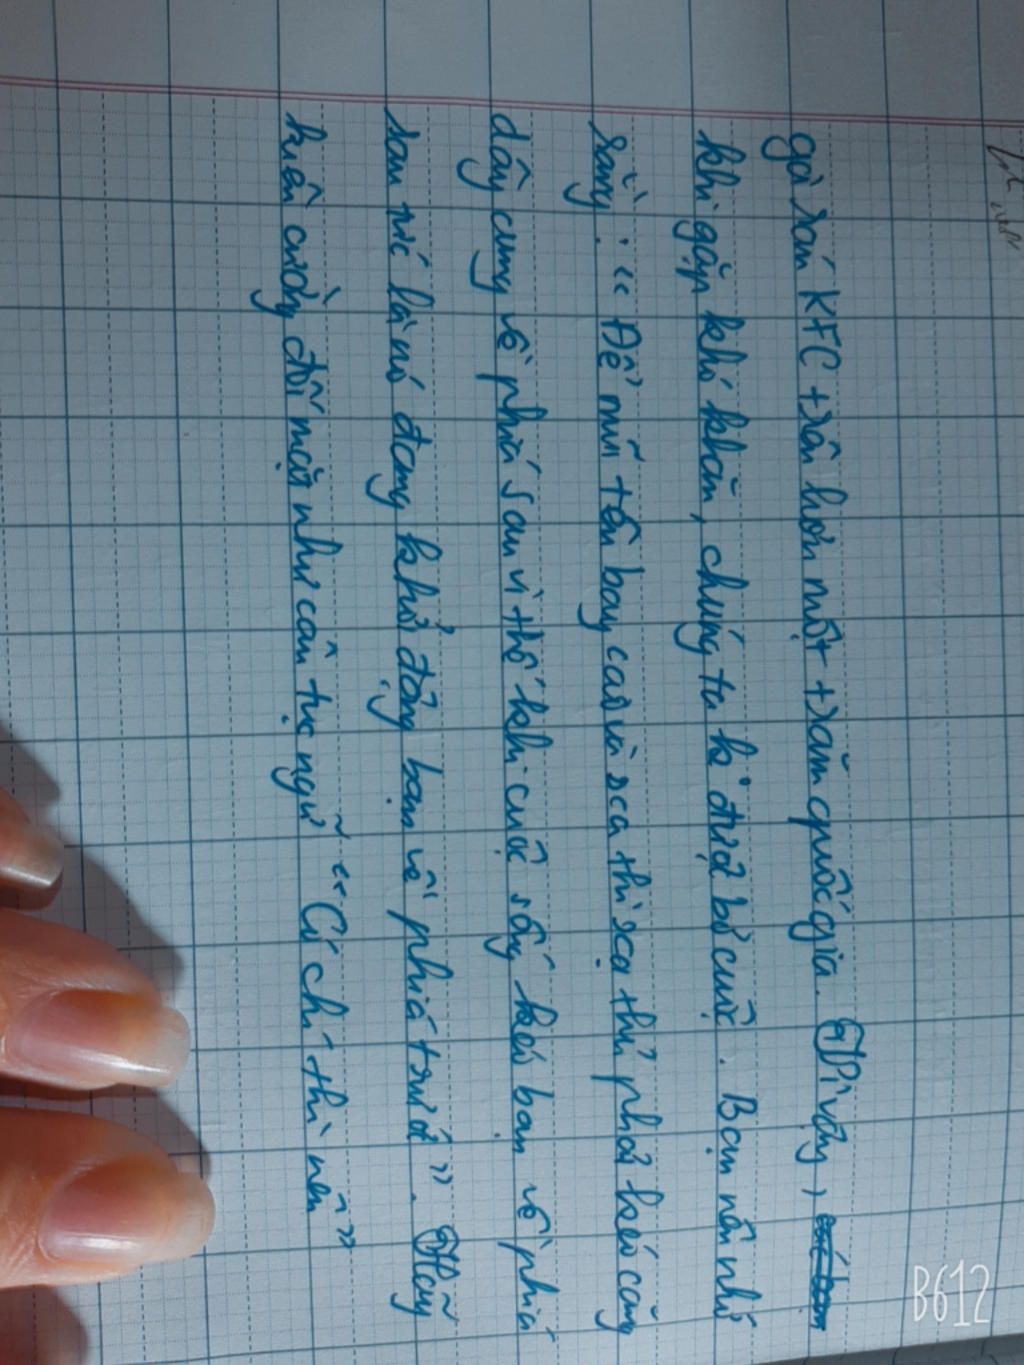 gà rán KFC trên hơn một trăm quốc gia. Vì vậy,
khi gặp khó khăn, chúng ta k được bỏ cuộc. Bạn nên nhớ
rằng: "Để mũi tên bay cao và xa thì xạ thủ phải kéo căng
dây cung về phía sau vì thế khi cuộc sống kéo bạn về phía
sau tức là nó đang khởi động bạn về phía trước". Hãy
kiên cường đối mặt như câu tục ngữ "Có chí thì nên"
B612